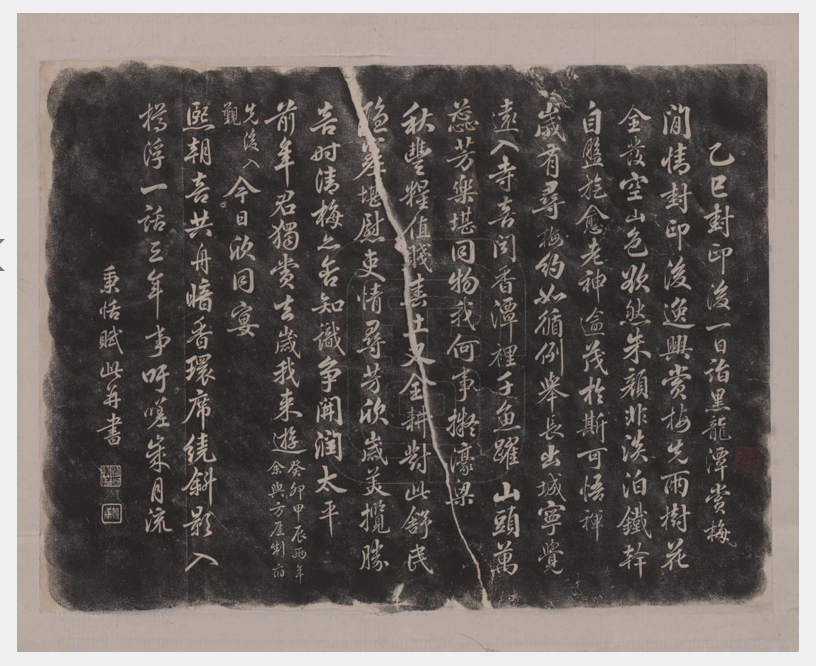 乙巳封印後一日詣黑龍潭賞梅
閒情封印後逸興賞梅先兩樹花
全發空山色欲然朱顏非淡泊鐵幹
自盤旋愈老神逾茂於斯可悟禪
歲有尋梅約如循例舉長出城寧覺
遠入寺喜聞香潭裡千魚躍山頭萬
蕊芳樂堪同物我何事擬濠梁
秋豐糧值賤春土又全耕對此舒民
隱庶堪慰吏情尋芳欣歲美攬勝
喜時清梅亦含知識爭開潤太平
前年君獨賞去歲我來遊癸卯甲辰兩年
余與方厓制府
先後入
觀今日欣同宴
熙朝喜共舟暗香環席繞斜影入
樽浮一話三年事吁嗟歲月流
秉恬賦此並書